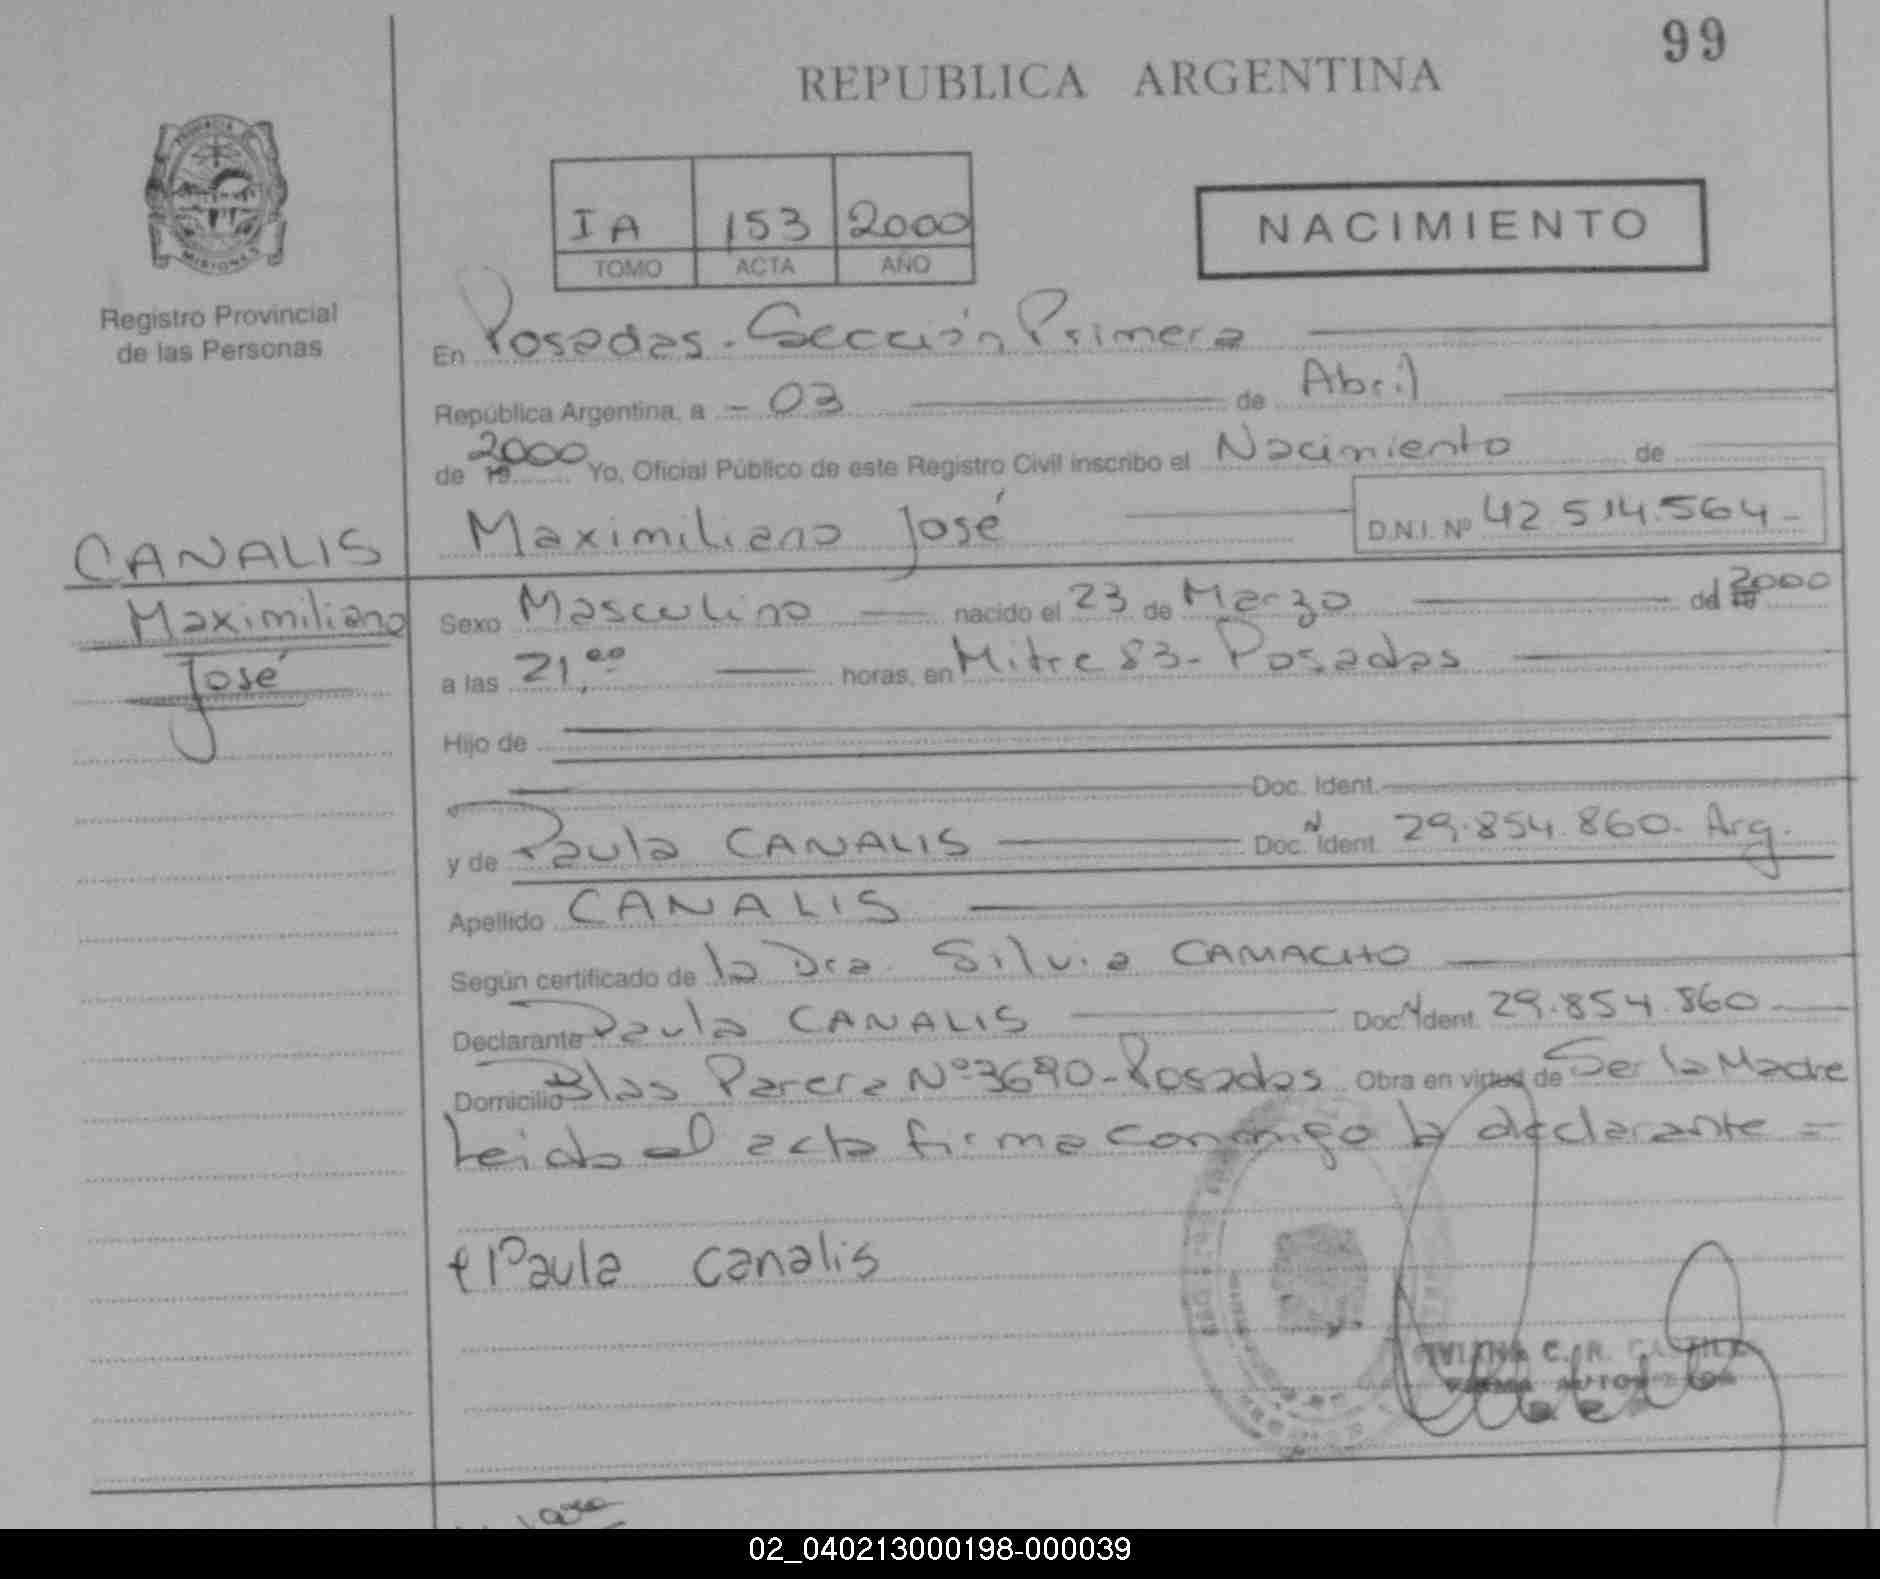 99
REPUBLICA ARGENTINA
PROVINCIA DE MISIONES
Registro Provincial
de las Personas
IA 153 2000
TOMO ACTA AÑO
NACIMIENTO
En Posadas - Sección Primera
República Argentina, a - 03 de Abril
de 19 2000 Yo, Oficial Público de este Registro Civil inscribo el Nacimiento de
Maximiliano José D.N.I. Nº 42 514.564-
CANALIS
Maximiliano
José
Sexo Masculino nacido el 23 de Marzo del 2000
a las 21,00 horas, en Mitre 83 - Posadas
Hijo de
Doc. Ident.
y de Paula CANALIS Doc. N Ident. 29.854.860. Arg.
Apellido CANALIS
Según certificado de la Dra. Silvia CAMACHO
Declarante Paula CANALIS Doc. N Ident. 29.854.860
Domicilio Blas Parera Nº 3690 - Posadas Obra en virtud de Ser la Madre
Leida el acta firma conmigo la declarante =
Paula Canalis
C. R.
02_040213000198-000039